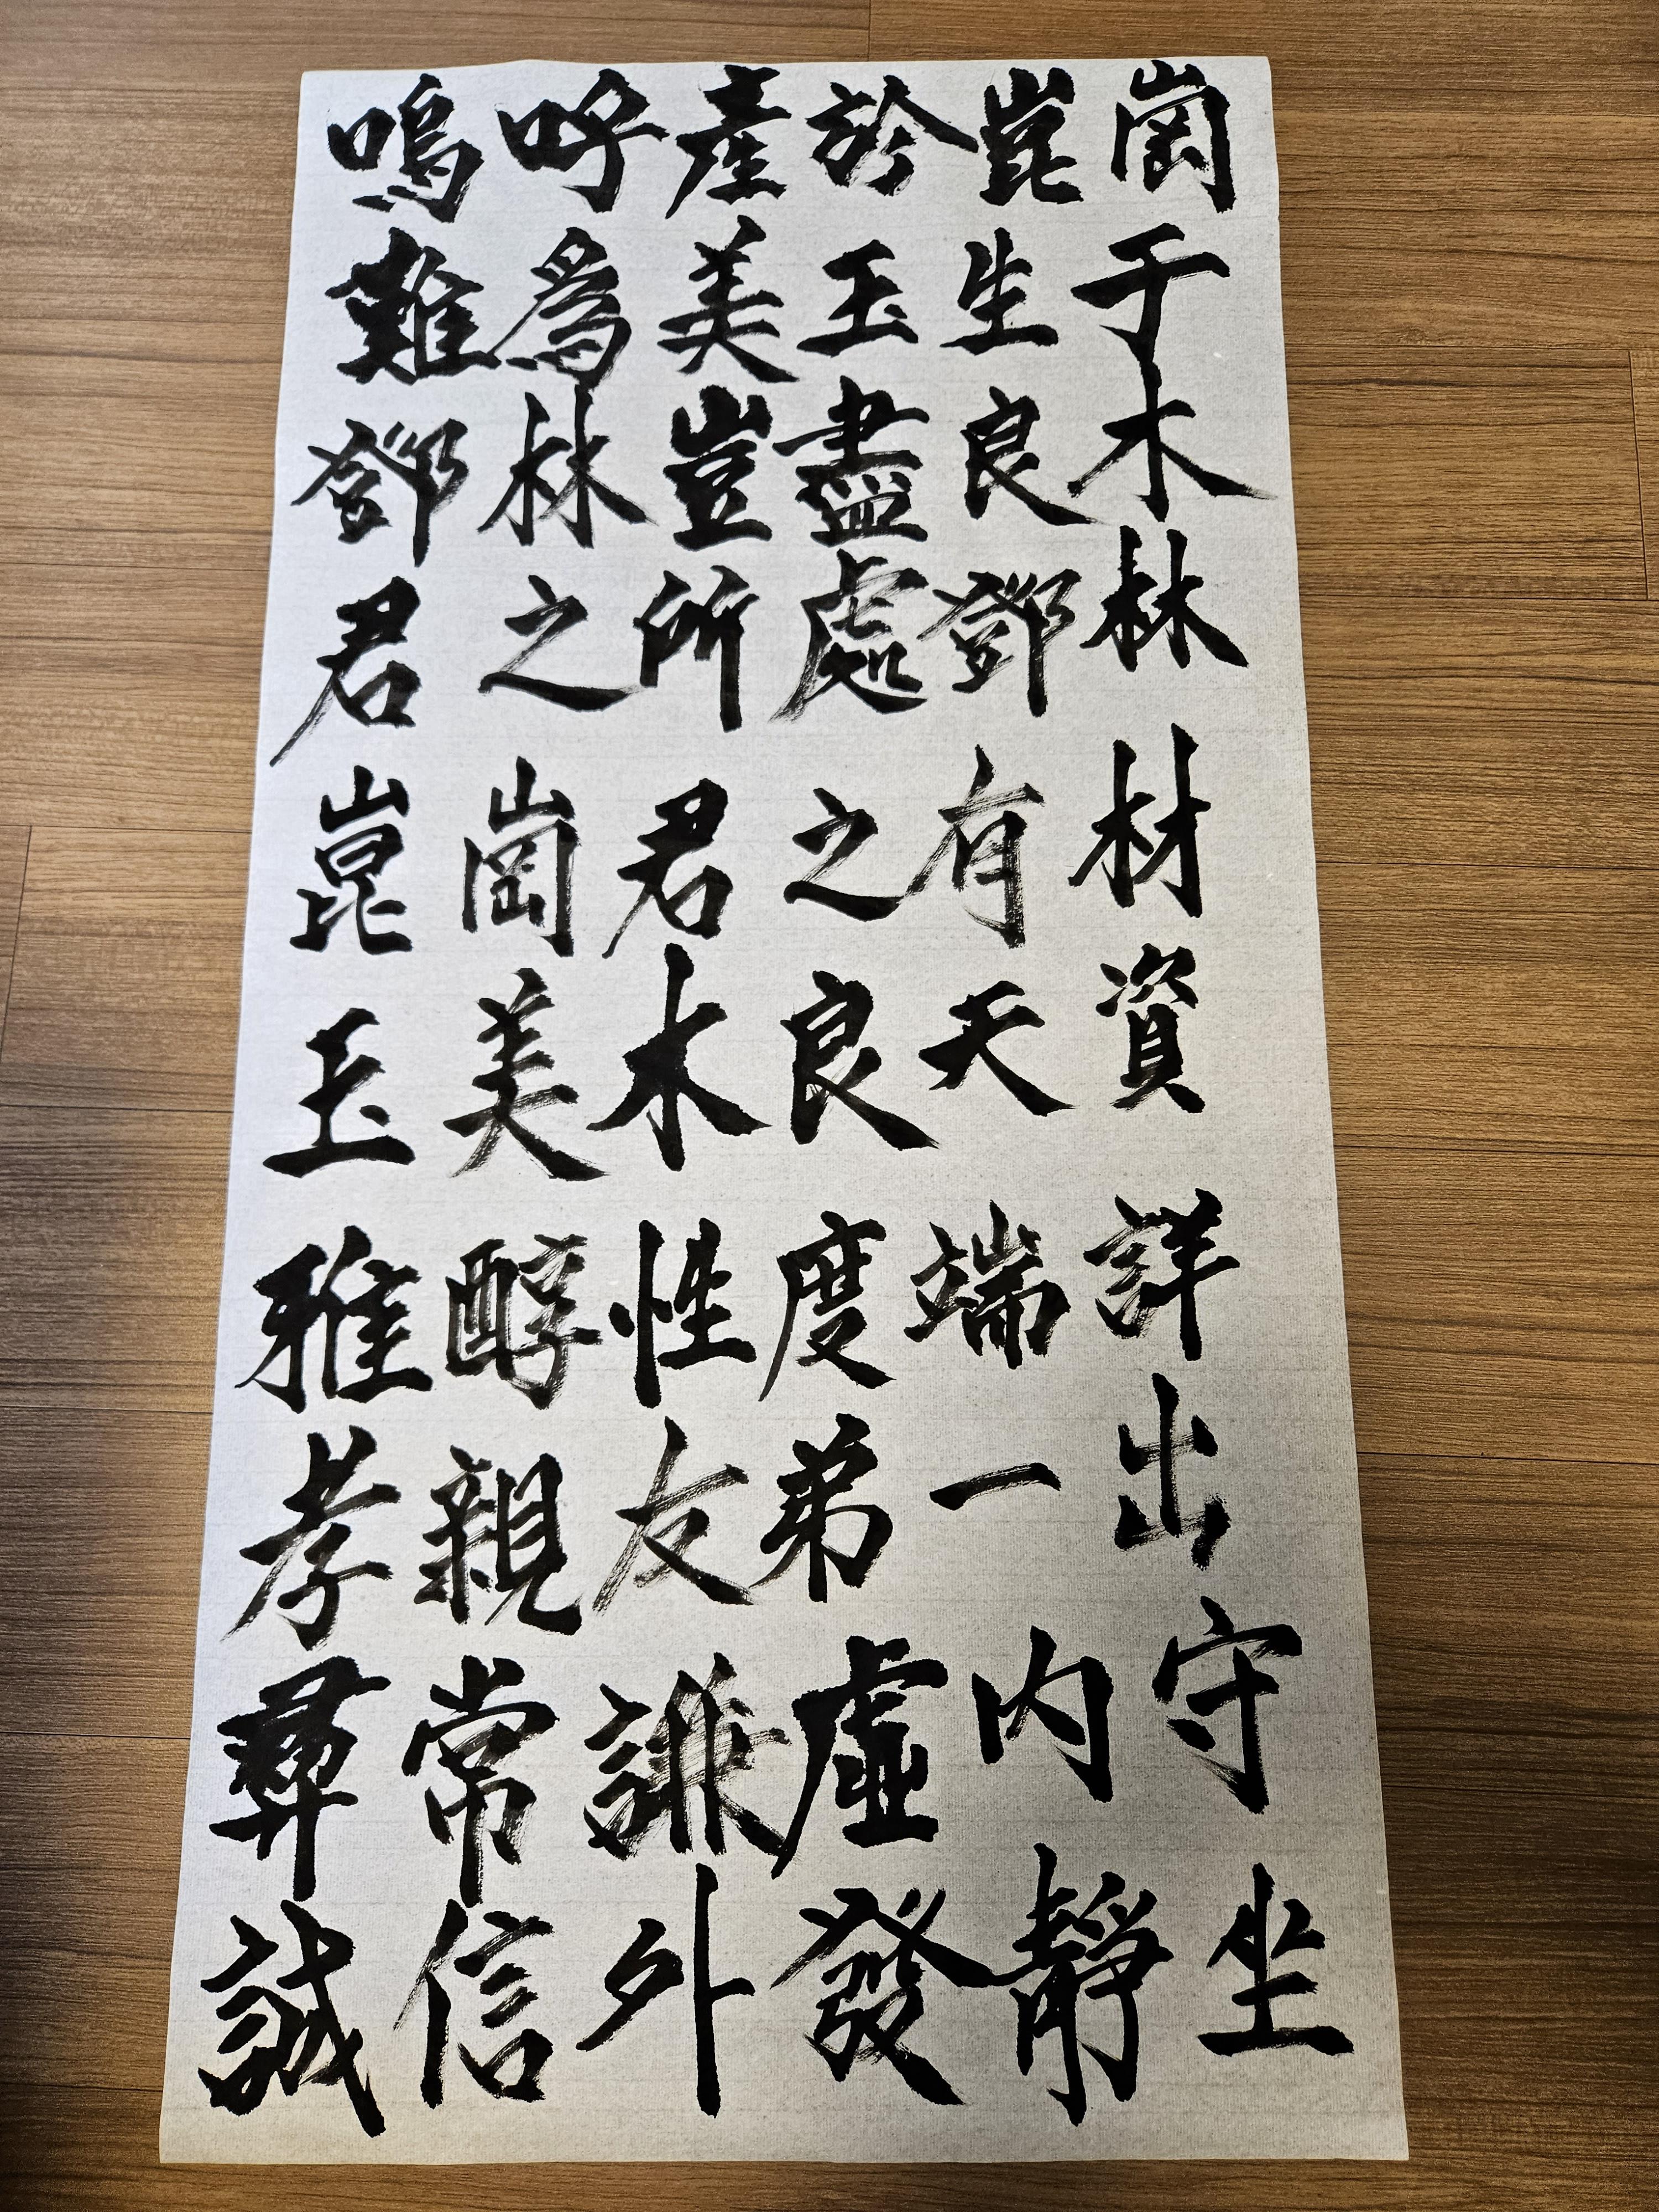 嗚呼產於崑崗
難爲美玉生于
鄧林豈盡良木
君之所處鄧林
崑崗君之有材
玉美木良天資
雅醇性度端詳
孝親友弟一出
彛常謙虛内守
誠信外發靜坐